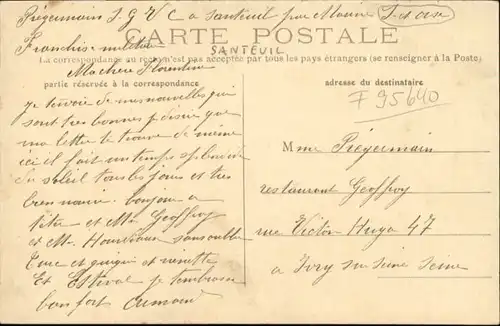 Prégermain S.G.V.C a Santeuil par Marine S. et Oise
Franchise militaire
CARTE POSTALE
SANTEUIL
La correspondance au recto n'est pas acceptée par tous les pays étrangers (se renseigner à la Poste)
Ma chere Florentine
partie réservée à la correspondance
adresse du destinataire
F 95640
je tenvoie de mes nouvelles qui
sont tres bonnes je desire que
ma lettre te trouve de meme
ici il fait un temps splendide
du soleil tous les jours et tres
bonjour a
tite et Mr Geoffroy
et Mr sans oublier
et et minette
Et Estival je tembrasse
bon fort Armand
Mme Prégermain
restaurant Geoffroy
rue Victor Hugo 47
a Ivry sur Seine Seine